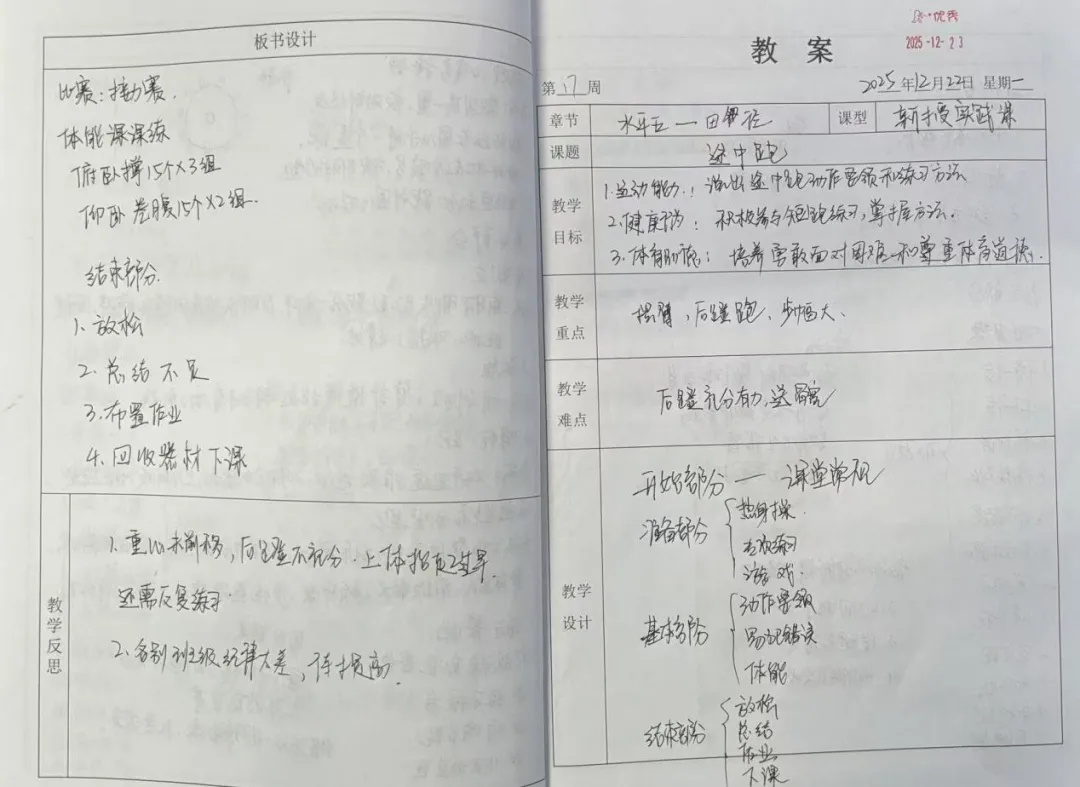 板书设计
比赛：接力赛.
体能课课练
俯卧撑15个×3组
仰卧卷腹15个×2组.
结束部分.
1. 放松
2. 总结不足
3. 布置作业
4. 回收器材下课
教学反思
1. 重心未前移，后蹬不充分. 上体抬起过早.
还需反复练习.
2. 各别班级纪律太差，待提高.
优秀
2025-12-23
教 案
第 17 周
2025 年12月22日 星期一
章节 水平五一田径 课型 新授实践课
课题 途中跑
教学目标
1. 运动能力：说出途中跑动作要领和练习方法
2. 健康行为：积极参与短跑练习，掌握方法.
3. 体育品德：培养勇敢面对困难和尊重体育道德.
教学重点
摆臂，后蹬跑、步幅大、
教学难点
后蹬充分有力，送髋
教学设计
开始部分一课堂常规
准备部分
热身操.
专项练习
游戏.
基本部分
动作要领
易犯错误
体能
结束部分
放松
总结
作业
下课